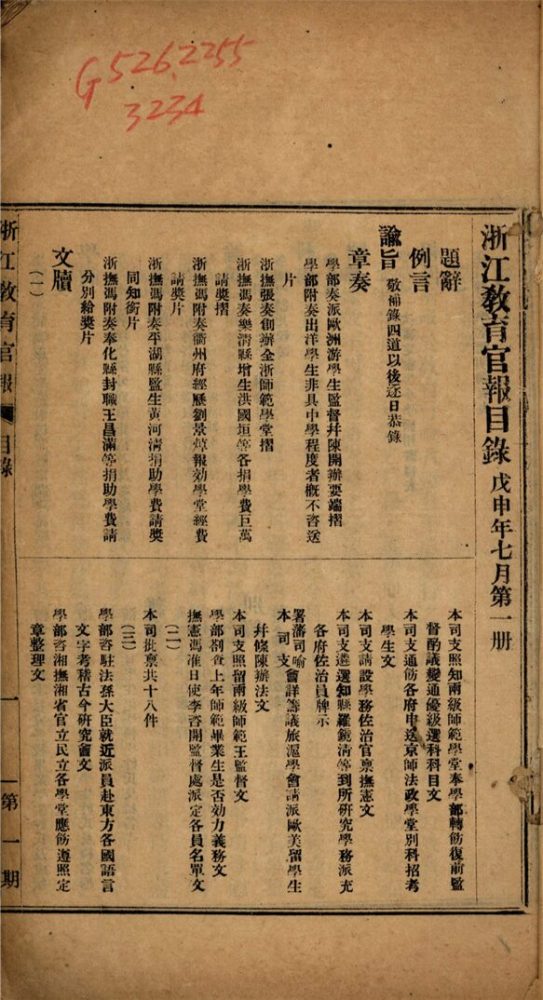 G526.2255
3234
浙江教育官報目錄 戊申年七月第一册
題辭
例言
諭旨 敬補錄四道以後逐日恭錄
章奏
學部奏派歐洲游學生監督幷陳開辦要端摺
學部附奏出洋學生非具中學程度者概不咨送
片
浙撫張奏創辦全浙師範學堂摺
浙撫馮奏樂清縣增生洪國垣等各捐學費巨萬
請獎摺
浙撫馮附奏衢州府經歷劉景煒報効學堂經費
請獎片
浙撫馮附奏平湖縣監生黃河清捐助學費請獎
同知銜片
浙撫馮附奏奉化縣封職王昌滿等捐助學費請
分別給獎片
文牘
(一)
本司支照知兩級師範學堂奉學部轉飭復前監
督酌議變通優級選科科目文
本司支通飭各府申送京師法政學堂別科招考
學生文
本司支請設學務佐治官稟撫憲文
本司支遴選知縣羅鏡清等到所研究學務派充
各府佐治員牌示
署藩司喻
本司支 會詳籌議旅滬學會請派歐美留學生
幷條陳辦法文
本司支照留兩級師範王監督文
學部劄查上年師範畢業生是否効力義務文
撫憲馮准日使李咨開監督處派定各員名單文
(二)
本司批稟共十八件
(三)
學部咨駐法孫大臣就近派員赴東方各國語言
文字考稽古今研究會文
學部咨湘撫湘省官立民立各學堂應飭遵照定
章整理文
浙江教育官報 目錄 一 第一期